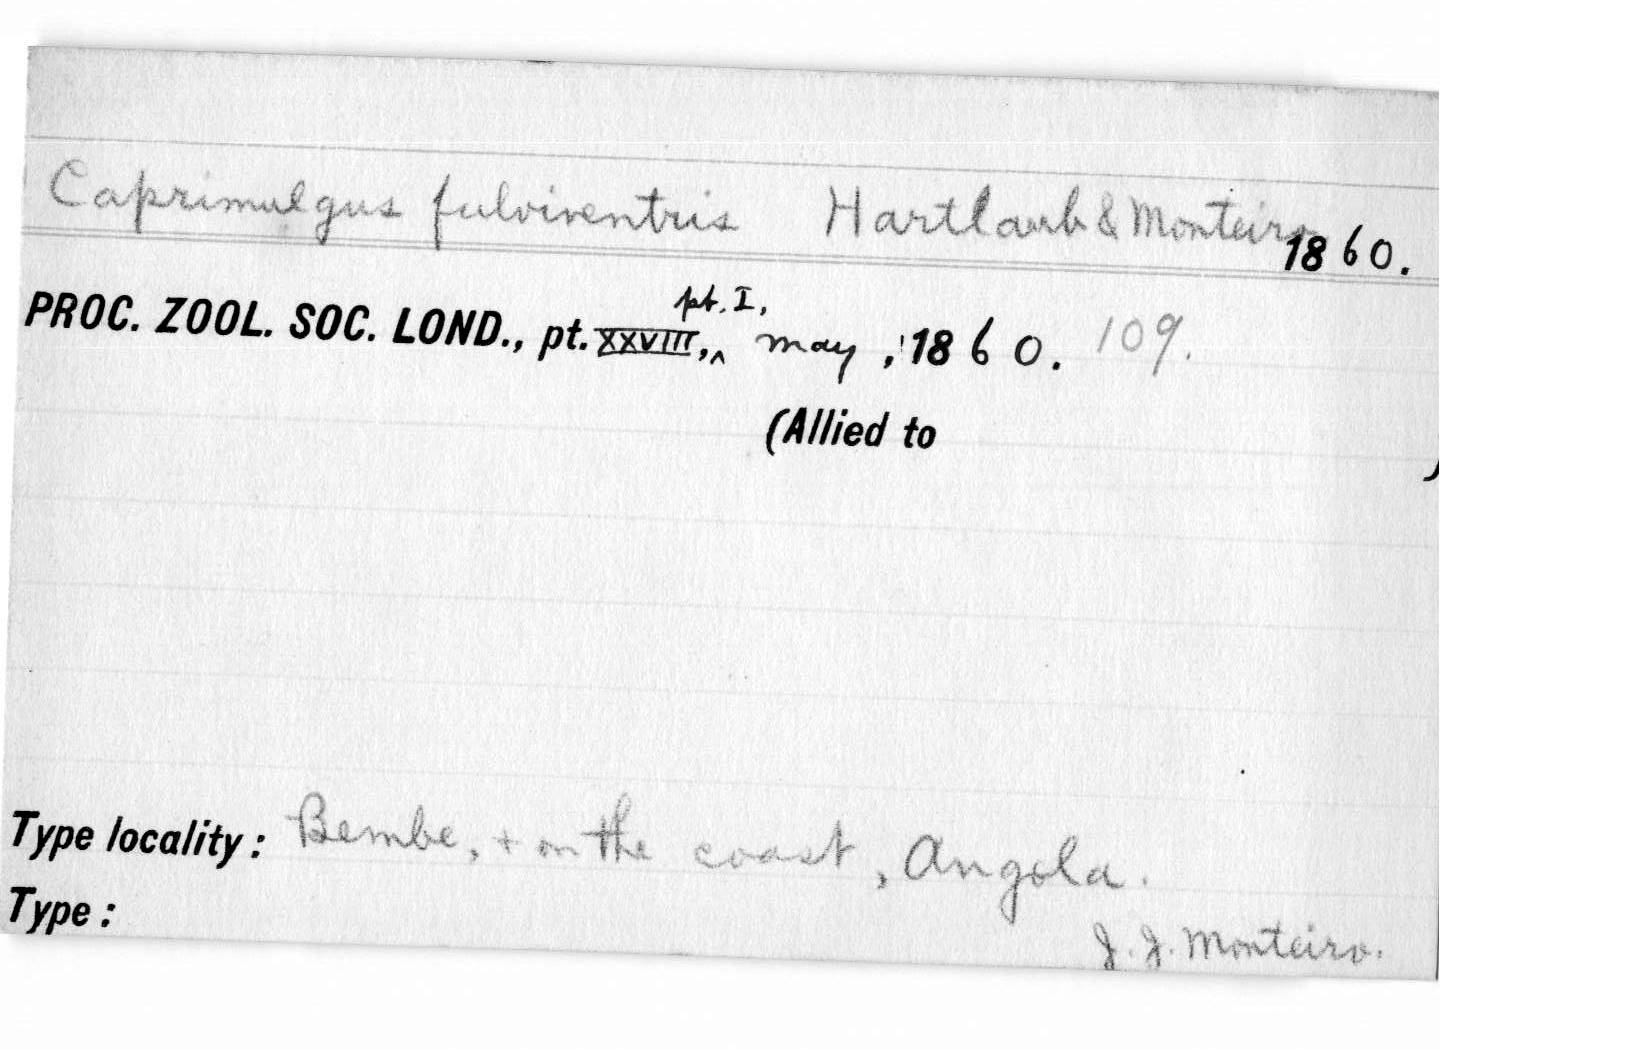 Caprimulgus fulviventris Hartlaub & Monteiro 1860.
PROC. ZOOL. SOC. LOND., pt. XXVIII, pt. I, May, 1860. 109.
(Allied to )
Type locality: Bembe, + on the coast, Angola.
Type:
J. J. Monteiro.